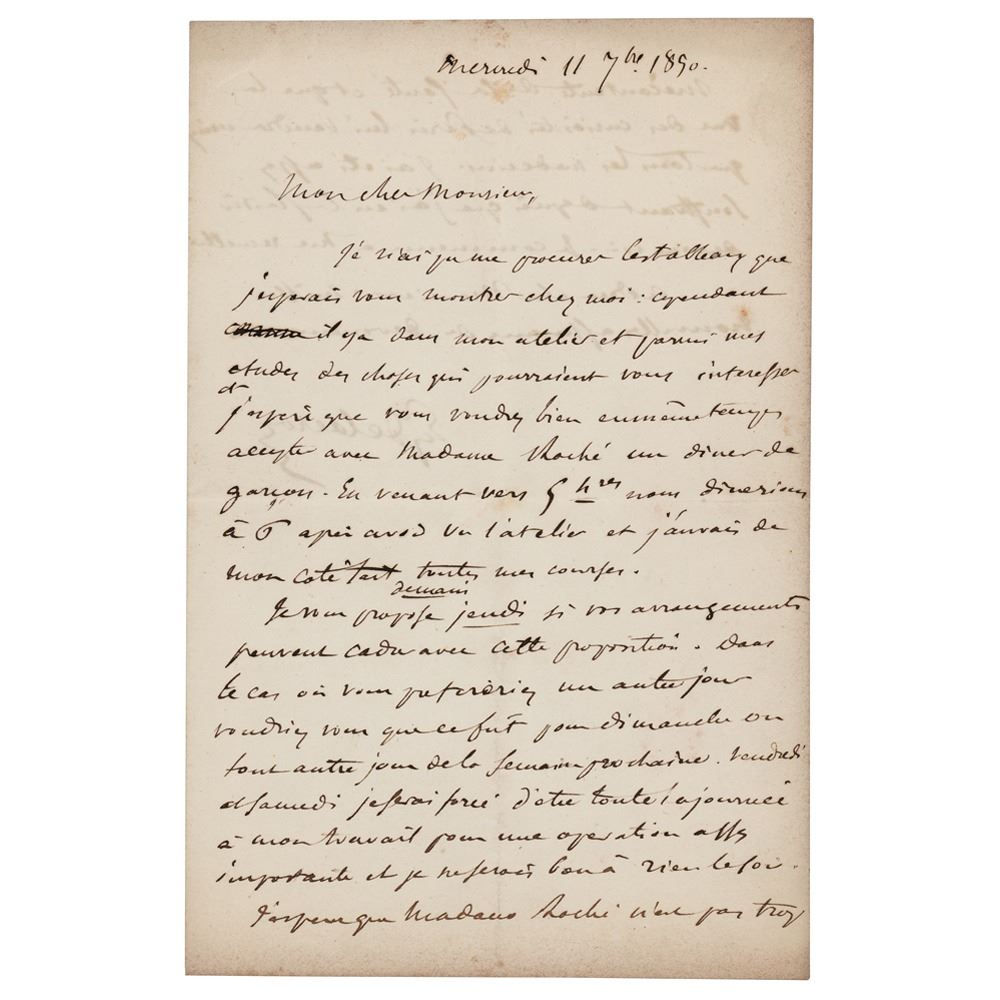 Mercredi 11 7bre 1850.
Mon cher Monsieur,
Je n'ai pu me procurer les tableaux que
j'esperais vous montrer chez moi : cependant
il y a dans mon atelier et parmi mes
etudes des choses qui pourraient vous interesser
et
j'espere que vous voudrez bien en même temps
accepter avec Madame Roché un diner de
garçon. En venant vers 5 hres nous dinerions
à 6 après avoir vu l'atelier et j'aurais de
mon coté fait toutes mes courses.
demain
Je vous propose jeudi si vos arrangements
peuvent cadrer avec cette proposition. Dans
le cas où vous prefereriez un autre jour
voudriez vous que ce fut pour dimanche ou
tout autre jour de la semaine prochaine. Vendredi
et samedi je serai forcé d'être toute la journée
à mon travail pour une operation assez
importante et je ne serais bon à rien le soir.
J'espere que Madame Roché n'est pas trop